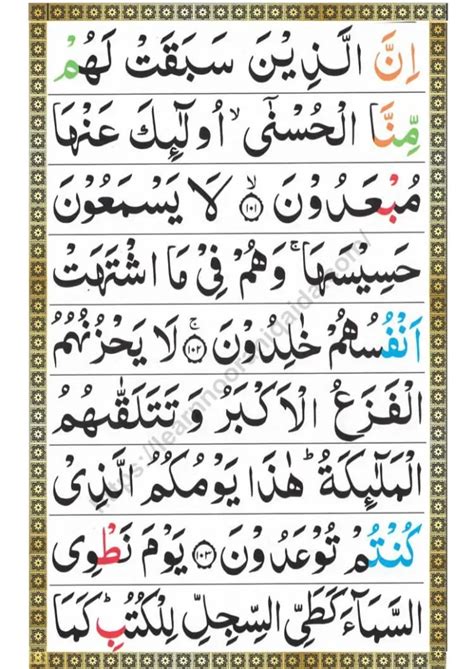 اِنَّ الَّذِيْنَ سَبَقَتْ لَهُمْ
مِّنَّا الْحُسْنٰٓى ۙ اُولٰٓئِكَ عَنْهَا
مُبْعَدُوْنَ ۙ﴿۱۰۱﴾ لَا يَسْمَعُوْنَ
حَسِيْسَهَا ۚ وَهُمْ فِيْ مَا اشْتَهَتْ
اَنْفُسُهُمْ خٰلِدُوْنَ ۚ﴿۱۰۲﴾ لَا يَحْزُنُهُمُ
الْفَزَعُ الْاَكْبَرُ وَ تَتَلَقّٰىهُمُ
الْمَلٰٓئِكَةُ ؕ هٰذَا يَوْمُكُمُ الَّذِيْ
كُنْتُمْ تُوْعَدُوْنَ ﴿۱۰۳﴾ يَوْمَ نَطْوِى
السَّمَآءَ كَطَيِّ السِّجِلِّ لِلْكُتُبِ ؕ كَمَا
8
https://learnnooraniqaida.com/